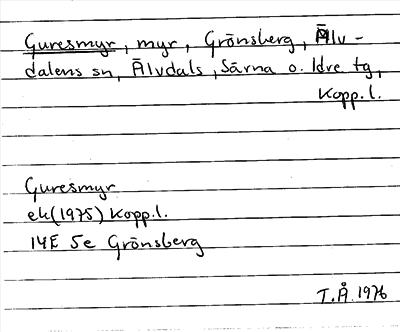 Guresmyr, myr, Grönsberg, Älv-
dalens sn, Älvdals, Särna o. Idre tg,
Kopp.l.
Guresmyr
ek(1975) Kopp.l.
14E 5e Grönsberg
T.Å. 1976